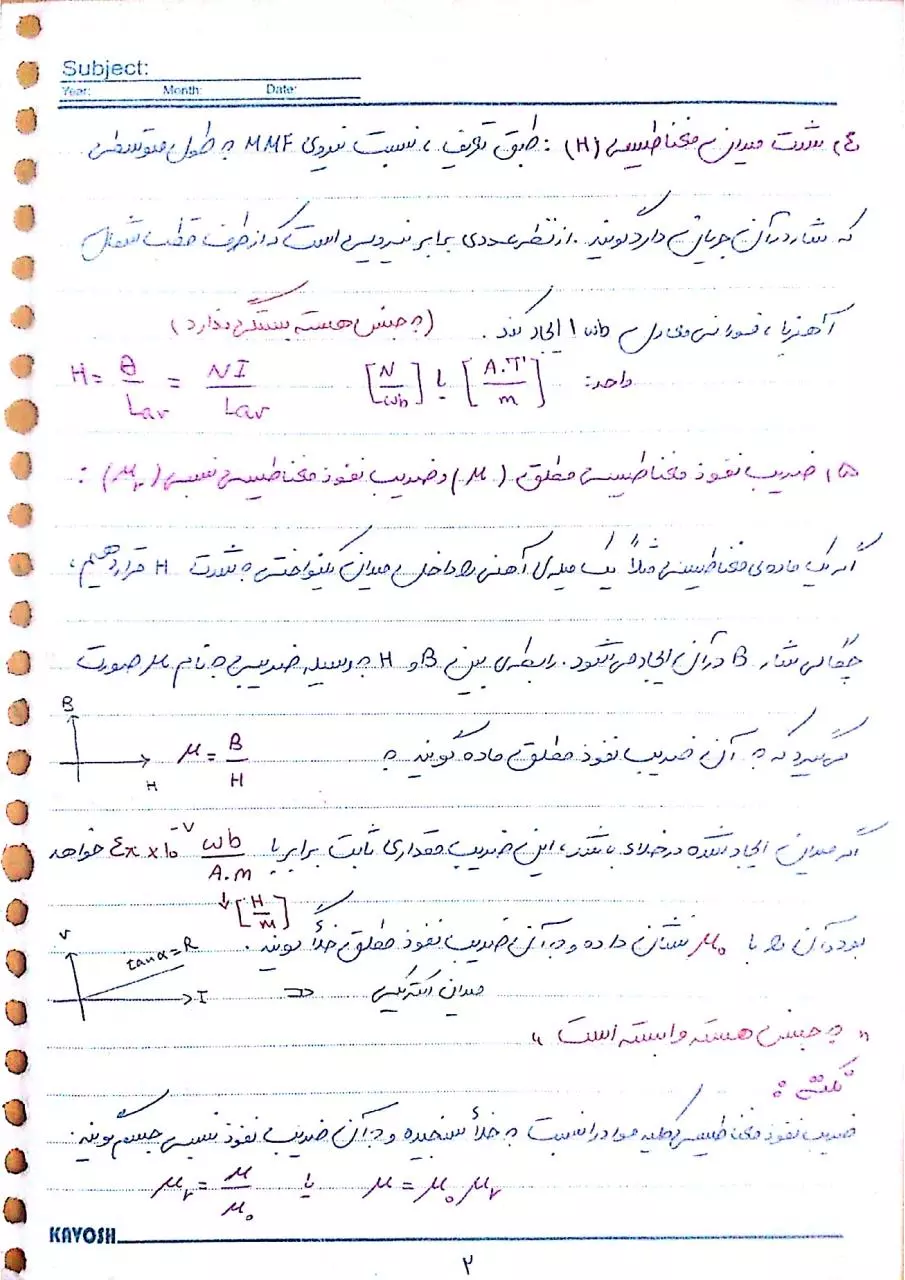 Subject:
Year: Month: Date:
۴) شدت میدان مغناطیسی (H) : طبق تعریف ، نسبت نیروی MMF به طول متوسطی
که شار در آن جریان دارد گویند . از نظر عددی برابر نیرویی است که از طرف قطب شمال
آهنربا ، فورانی معادل 1 wb ایجاد کند . (به جنس هسته بستگی ندارد)
H = θ/Lav = NI/Lav [N/wb] یا [A.T/m] واحد:
۵) ضریب نفوذ مغناطیسی مطلق (μ) و ضریب نفوذ مغناطیسی نسبی (μr) :
اگر یک ماده‌ی مغناطیسی مثلاً یک میله‌ی آهنی را داخل میدان یکنواختی به شدت H قرار دهیم ،
چگالی شار B در آن ایجاد می شود . رابطه‌ی بین B و H به وسیله ضریبی به نام μ صورت
می‌گیرد که به آن ضریب نفوذ مطلق ماده گویند : μ = B/H
B
H
اگر میدان ایجاد شده در خلاء باشد ، این ضریب مقداری ثابت برابر با ۴π × ۱۰⁻⁷ wb/A.m خواهد
↓ [H/m]
بود و آن را با μ₀ نشان داده و به آن ضریب نفوذ مطلق خلأ گویند .
V
tanα = R
I
⇐ میدان الکتریکی
" به جنس هسته وابسته است "
نکته :
ضریب نفوذ مغناطیسی کلیه مواد را نسبت به خلأ سنجیده و به آن ضریب نفوذ نسبی جسم گویند .
μr = μ/μ₀ یا μ = μ₀ μr
KAVOSH
۲